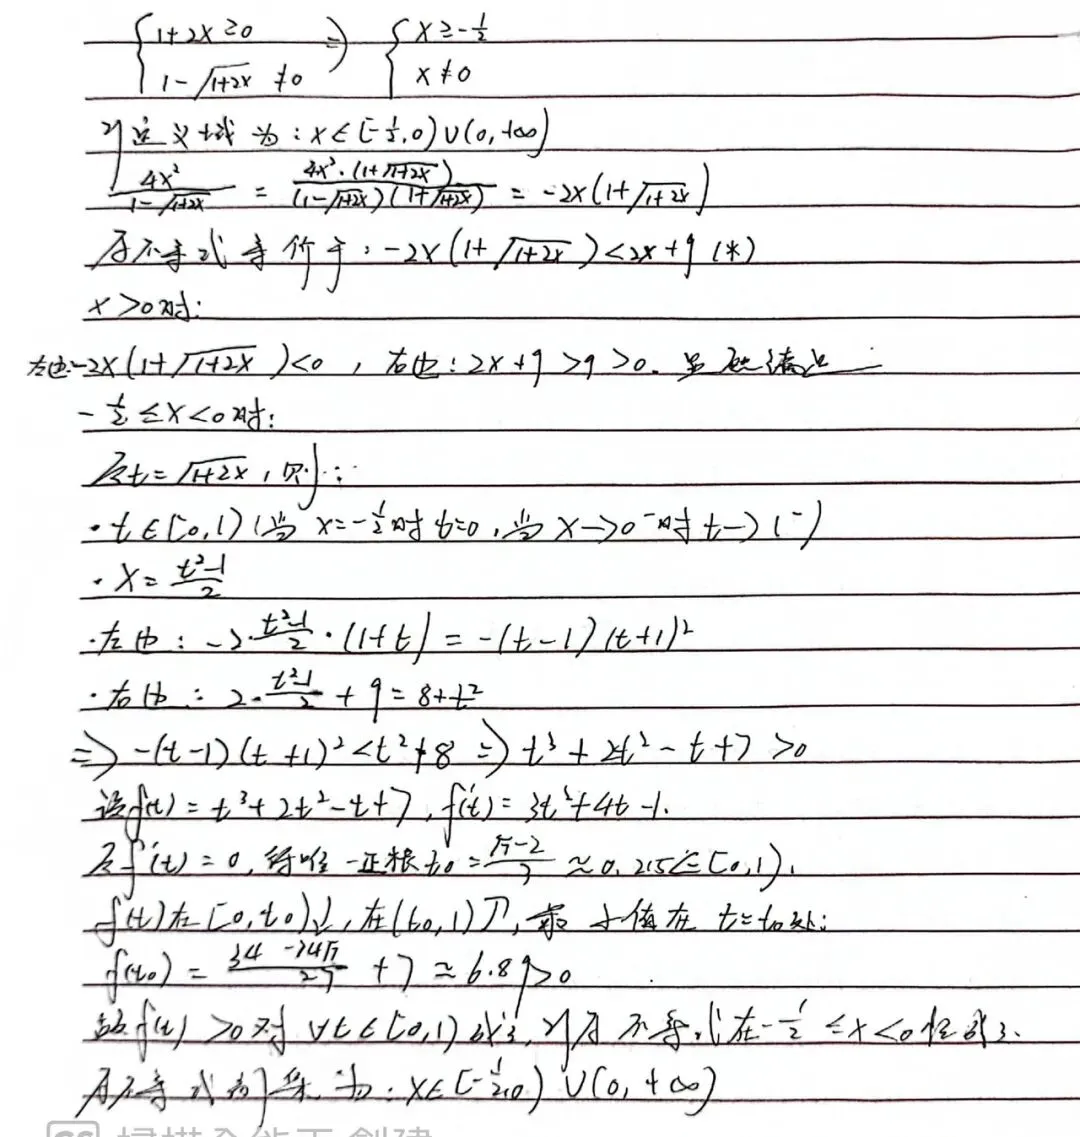 {1+2x≥0  1-√(1+2x) ≠0 ⇒ {x≥-1/2  x≠0
则定义域为:x∈[-1/2,0)∪(0,+∞)
4x²/(1-√(1+2x)) = 4x²·(1+√(1+2x))/((1-√(1+2x))(1+√(1+2x))) = -2x(1+√(1+2x))
原不等式等价于:-2x(1+√(1+2x))<2x+9 (*)
x>0时:
左边:-2x(1+√(1+2x))<0,右边:2x+9>9>0.显然满足
-1/2≤x<0时:
令t=√(1+2x),则:
·t∈[0,1)(当x=-1/2时t=0,当x→0⁻时t→1⁻)
·x=(t²-1)/2
·左边:-2·(t²-1)/2·(1+t)=-(t-1)(t+1)²
·右边:2·(t²-1)/2+9=8+t²
⇒-(t-1)(t+1)²<t²+8⇒t³+2t²-t+7>0
设f(t)=t³+2t²-t+7,f'(t)=3t²+4t-1.
令f'(t)=0,得唯一正根t₀=(√7-2)/3≈0.215∈[0,1).
f(t)在[0,t₀)↓,在(t₀,1)↑,最小值在t=t₀处:
f(t₀)=(34-14√7)/27+7≈6.89>0
故f(t)>0对∀t∈[0,1)成立,则原不等式在-1/2≤x<0恒成立.
原不等式的解集为:x∈[-1/2,0)∪(0,+∞)
CS 扫描全能王 创建